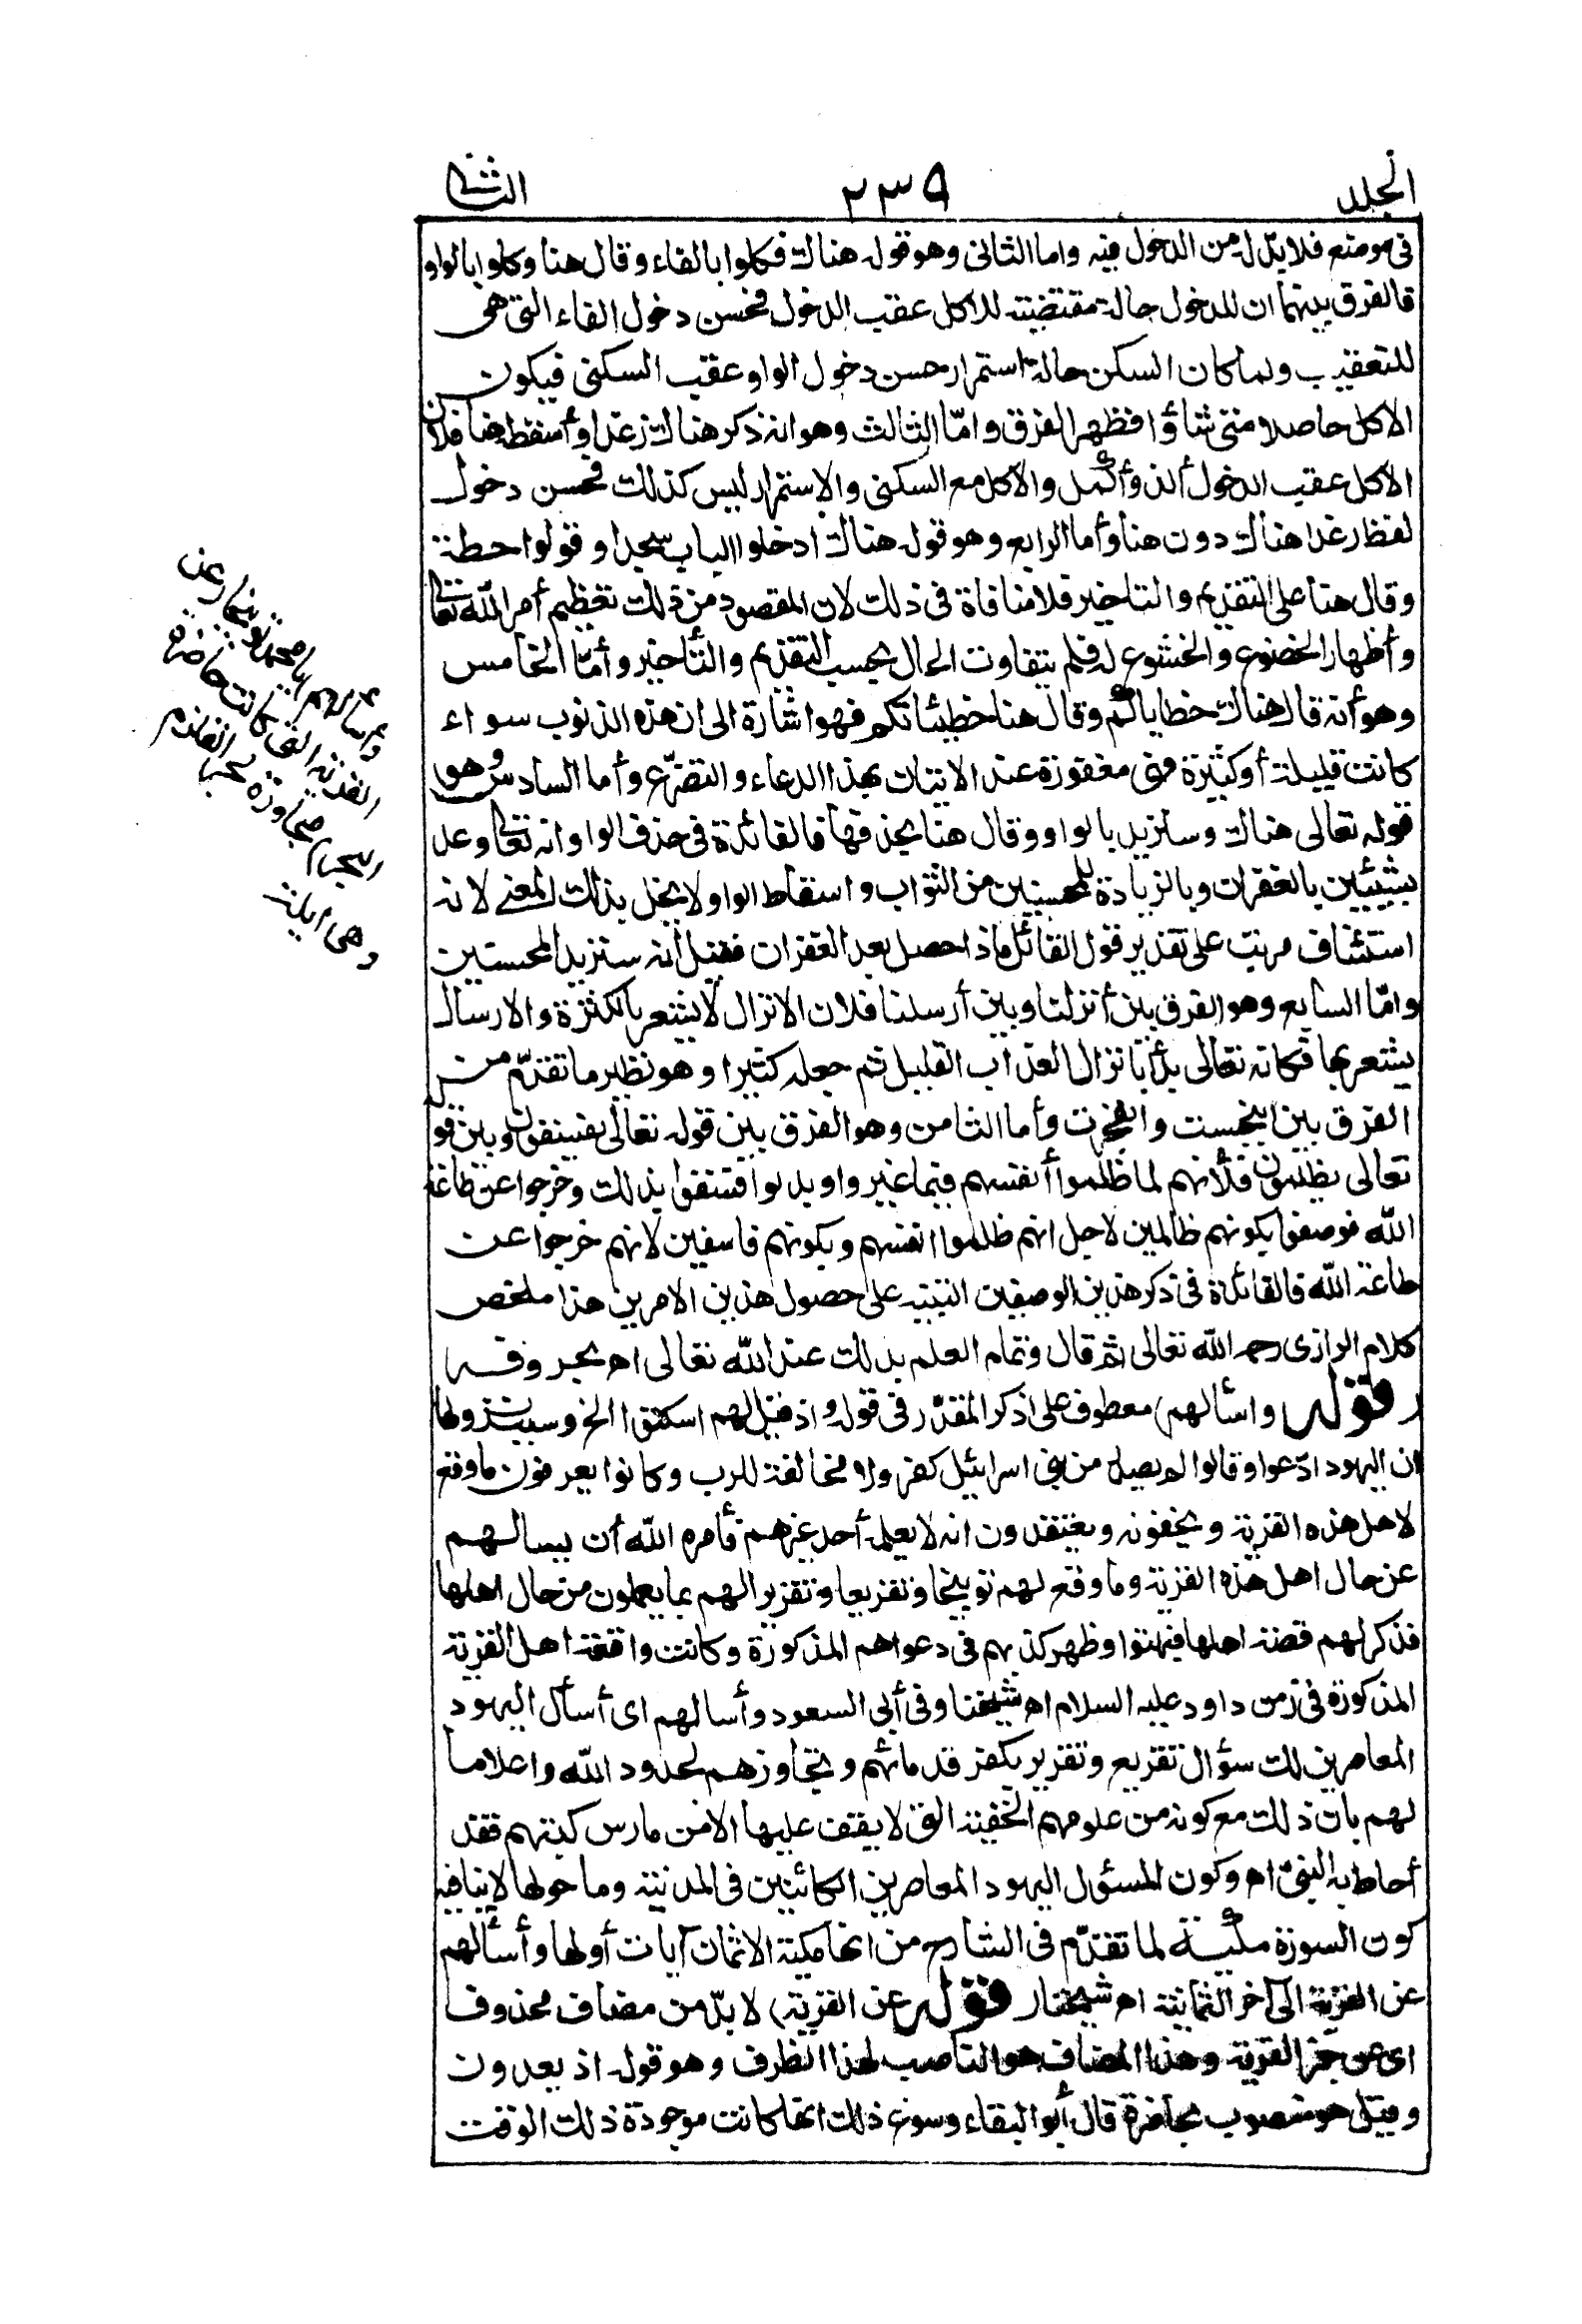 الجلد ٢٣٩ الثانى
فى موضع فلا بد له من الدخول فيه واما الثانى وهو قوله هناك فكلوا بالفاء وقال هنا وكلوا بالواو
فالفرق بينهما ان للدخول حالة مقتضية للاكل عقب الدخول فحسن دخول الفاء التى هى
للتعقيب ولما كان السكن حالة استمرار حسن دخول الواو عقب السكنى فيكون
الاكل حاصلا متى شاؤا فظهر الفرق وامّا الثالث وهو انه ذكر هناك رغدا وأسقطه هنا فلان
الاكل عقب الدخول ألذ وأكمل والاكل مع السكنى والاستمرار ليس كذلك فحسن دخول
لفظ رغدا هناك دون هنا وأما الرابع وهو قوله هناك ادخلوا الباب سجدا وقولوا حطة
وقال هنا على التقديم والتاخير فلا منافاة فى ذلك لان المقصود من ذلك تعظيم أمر الله تعالى
وأظهار الخضوع والخشوع له فلم يتفاوت الحال بحسب التقديم والتأخير وأمّا الخامس
وهو أنه قال هناك خطاياكم وقال هنا خطيئاتكم فهو اشارة الى ان هذه الذنوب سواء
كانت قليلة أو كثيرة فهى مغفورة عند الاتيان بهذا الدعاء والتضرّع وأما السادس وهو
قوله تعالى هناك وسنزيد بالواو وقال هنا بحذفها فالفائدة فى حذف الواو انه تعالى وعد
بشيئين بالغفران وبالزيادة للمحسنين من الثواب واسقاط الواو لا يخل بذلك المعنى لانه
استئناف مرتب على تقدير قول القائل ماذا حصل بعد الغفران فقيل انه سنزيد المحسنين
وامّا السابع وهو الفرق بين أنزلنا وبين أرسلنا فلان الانزال لا يشعر بالكثرة والارسال
يشعر بها فكانه تعالى بدأ بانزال العذاب القليل ثم جعله كثيرا وهو نظير ما تقدّم من
الفرق بين انبجست وانفجرت وأما الثامن وهو الفرق بين قوله تعالى يفسقون وبين قوله
تعالى يظلمون فلأنهم لما ظلموا أنفسهم فيما غيروا وبدلوا فسقوا بذلك وخرجوا عن طاعة
الله فوصفوا بكونهم ظالمين لاجل انهم ظلموا انفسهم وبكونهم فاسقين لانهم خرجوا عن
طاعة الله فالفائدة فى ذكر هذين الوصفين التنبيه على حصول هذين الامرين هذا ملخص
كلام الرازى رحمه الله تعالى ثم قال وتمام العلم بذلك عند الله تعالى اه بحروفه
(قوله واسألهم) معطوف على اذكر المقدّر فى قوله واذ قيل لهم اسكنوا الخ وسبب نزولها
ان اليهود ادّعوا وقالوا لم يصدر من بنى اسرائيل كفر ولا مخالفة للرب وكانوا يعرفون ما وقع
لاهل هذه القرية ويخفونه ويعتقدون انه لا يعلمه أحد غيرهم فأمره الله أن يسالهم
عن حال اهل هذه القرية وما وقع لهم توبيخا وتقريعا وتقريرا لهم بما يعلمون من حال اهلها
فذكر لهم قصة اهلها فبهتوا وظهر كذبهم فى دعواهم المذكورة وكانت واقعة اهل القرية
المذكورة فى زمن داود عليه السلام اه شيخنا وفى أبى السعود وأسالهم اى أسأل اليهود
المعاصرين لك سؤال تقريع وتقرير بكفر قدمائهم وتجاوزهم لحدود الله واعلاما
لهم بان ذلك مع كونه من علومهم الخفية التى لا يقف عليها الا من مارس كتبهم فقد
أحاط به النبىّ اه وكون المسئول اليهود المعاصرين الكائنين فى المدينة وما حولها لا ينافيه
كون السورة مكية لما تقدّم فى الشارح من انها مكية الا ثمان آيات أولها وأسألهم
عن القرية الى آخر الثمانية اه شيخنا (قوله عن القرية) لا بدّ من مضاف محذوف
اى عن خبر القرية وهذا المضاف هو الناصب لهذا الظرف وهو قوله اذ يعدون
وقيل هو منصوب بحاضرة قال أبو البقاء وسوغ ذلك انها كانت موجودة ذلك الوقت
وأسألهم يا محمد توبيخا عن
القرية التى كانت حاضرة
البحر مجاورة بحر القلزم
وهى ايلة